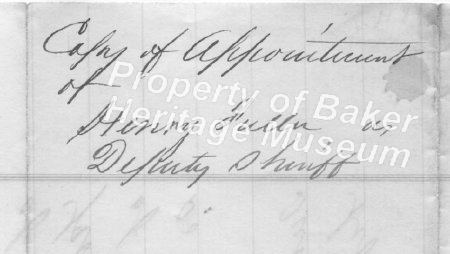 Copy of Appointment
of
Henry Fuller as
Deputy Sheriff
Property of Baker
Heritage Museum